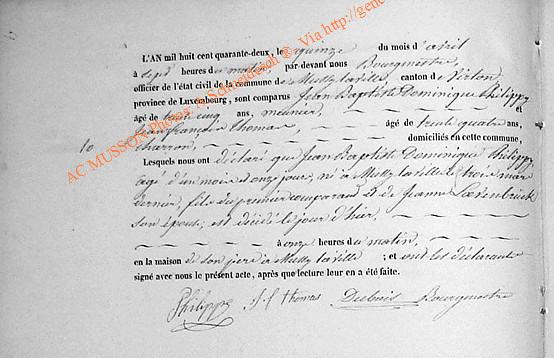 L'AN mil huit cent quarante-deux, le quinze du mois d'avril
à sept heures du matin par-devant nous Bourgmestre,
officier de l'état civil de la commune de Mussy la ville, canton de Virton,
province de Luxembourg, sont comparus Jean Baptiste Dominique Philippe
âgé de cinq ans, meunier, et
Jean françois Thomas, âgé de trente quatre ans,
10 charron, domiciliés en cette commune,
Lesquels nous ont déclaré que Jean Baptiste Dominique Philippe,
agé d'un mois et onze jours, né à Mussy la ville le trois mars
dernier, fils du premier comparant et de Jeanne
son épouse, est décédé le jour d'hier,
à onze heures du matin,
en la maison de son père à Mussy la ville ; et ont les déclarants
signé avec nous le présent acte, après que lecture leur en a été faite.
Philippe J-f thomas Dubois Bourgmestre
AC MUSSON Photos © Via http://gene